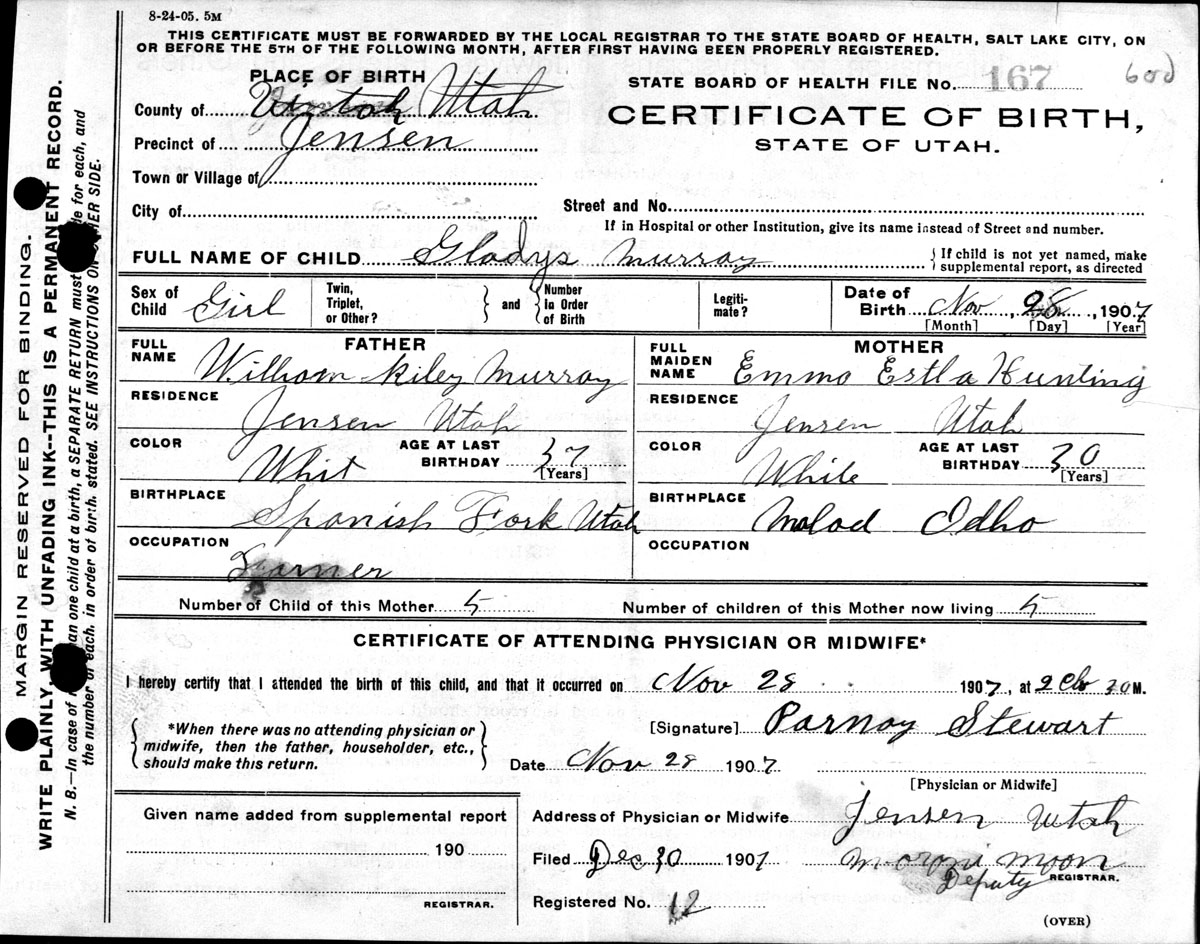 8-24-05. 5M
THIS CERTIFICATE MUST BE FORWARDED BY THE LOCAL REGISTRAR TO THE STATE BOARD OF HEALTH, SALT LAKE CITY, ON
OR BEFORE THE 5TH OF THE FOLLOWING MONTH, AFTER FIRST HAVING BEEN PROPERLY REGISTERED.
PLACE OF BIRTH
STATE BOARD OF HEALTH FILE No. 167
County of Utah
CERTIFICATE OF BIRTH,
Precinct of Jensen
STATE OF UTAH.
Town or Village of
City of
Street and No.
If in Hospital or other Institution, give its name instead of Street and number.
FULL NAME OF CHILD Gladys Murray
If child is not yet named, make
supplemental report, as directed
Sex of
Child Girl
Twin,
Triplet,
or Other?
and
Number
in Order
of Birth
Legiti-
mate?
Date of
Birth Nov 28, 1907
[Month] [Day] [Year]
FATHER
FULL
NAME Williom Riley Murray
RESIDENCE
Jensen Utah
COLOR
Whit
AGE AT LAST
BIRTHDAY 37
[Years]
BIRTHPLACE
Spanish Fork Utah
OCCUPATION
Farmer
MOTHER
FULL
MAIDEN
NAME Emma Estla Hunting
RESIDENCE
Jensen Utah
COLOR
White
AGE AT LAST
BIRTHDAY 30
[Years]
BIRTHPLACE
Malad Idho
OCCUPATION
Number of Child of this Mother 5
Number of children of this Mother now living 5
CERTIFICATE OF ATTENDING PHYSICIAN OR MIDWIFE*
I hereby certify that I attended the birth of this child, and that it occurred on Nov 28 1907, at 2 30 M.
*When there was no attending physician or
midwife, then the father, householder, etc.,
should make this return.
[Signature] Parnay Stewart
Date Nov 28 1907
[Physician or Midwife]
Given name added from supplemental report
190
REGISTRAR.
Address of Physician or Midwife Jensen Utah
Filed Dec 30 1907 Moroni Moon
Deputy REGISTRAR.
Registered No. 12
(OVER)
MARGIN RESERVED FOR BINDING.
WRITE PLAINLY, WITH UNFADING INK--THIS IS A PERMANENT RECORD.
N. B.—In case of an one child at a birth, a SEPARATE RETURN must de for each, and
the number of each, in order of birth, stated. SEE INSTRUCTIONS ON HER SIDE.